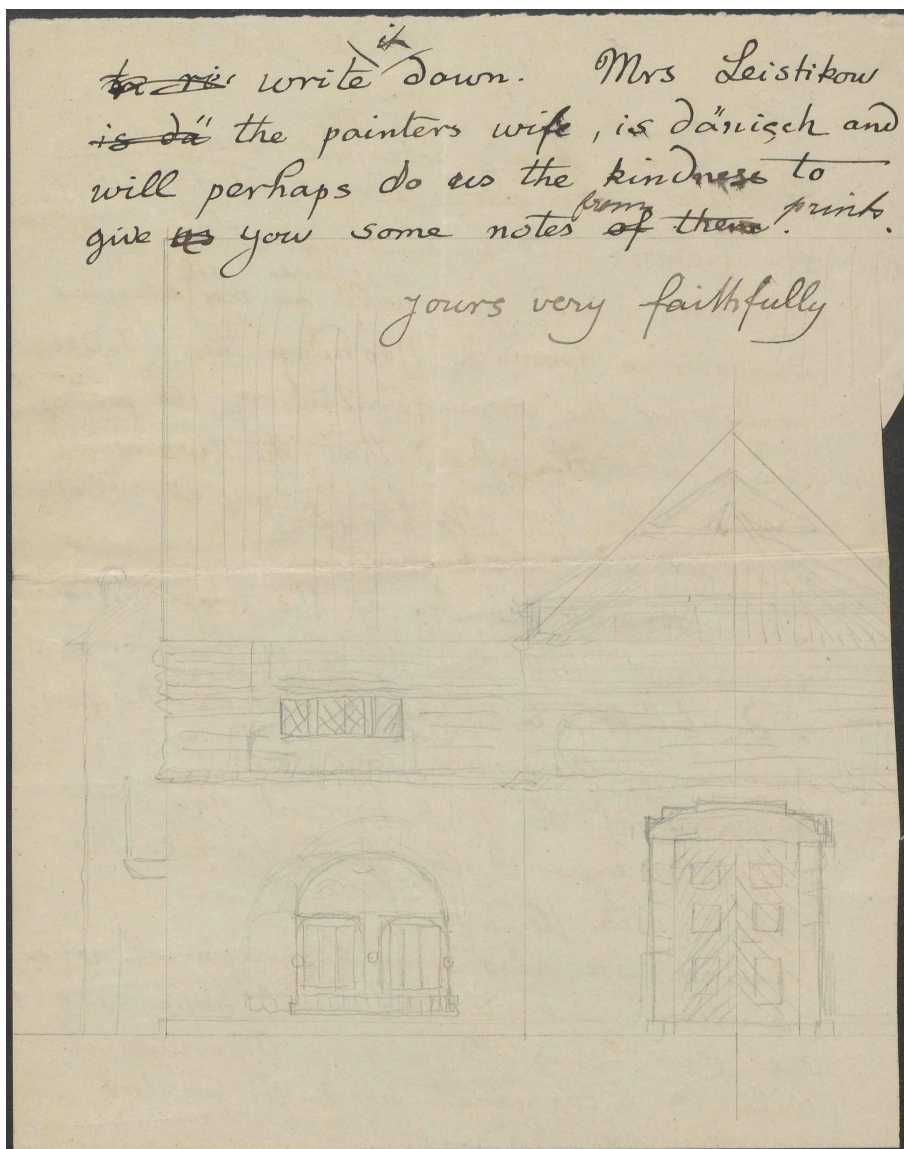 to ri write it down. Mrs Leistikow
is dä the painters wife, is dänisch and
will perhaps do us the kindness to
give us you some notes of them from prints.
yours very faithfully